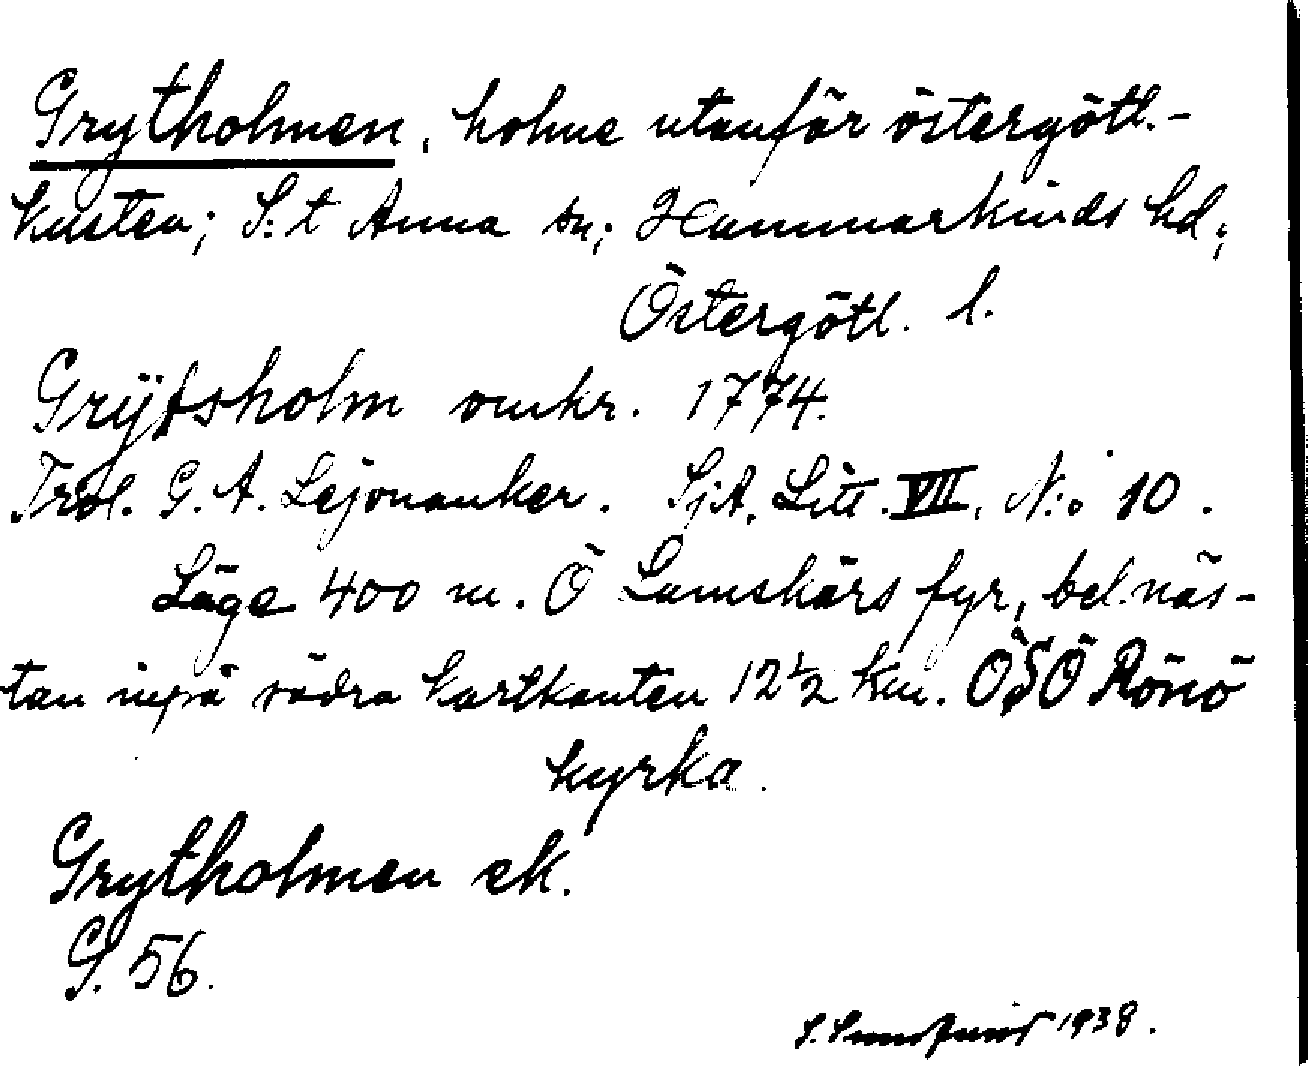 Grytholmen, holme utanför östergötl.-
kusten; S:t Anna sn; Hammarkinds hd;
Östergötl. l.
Grÿtsholm omkr. 1774.
Trol. G. A. Lejonanker. SjA. Litt. VII. N:o 10.
Läge 400 m. Ö Lamskärs fyr, bel. näs-
tan inpå södra kartkanten 12 1/2 km. ÖSÖ Rönö
kyrka.
Grytholmen ek.
S. 56.
S. 1938.